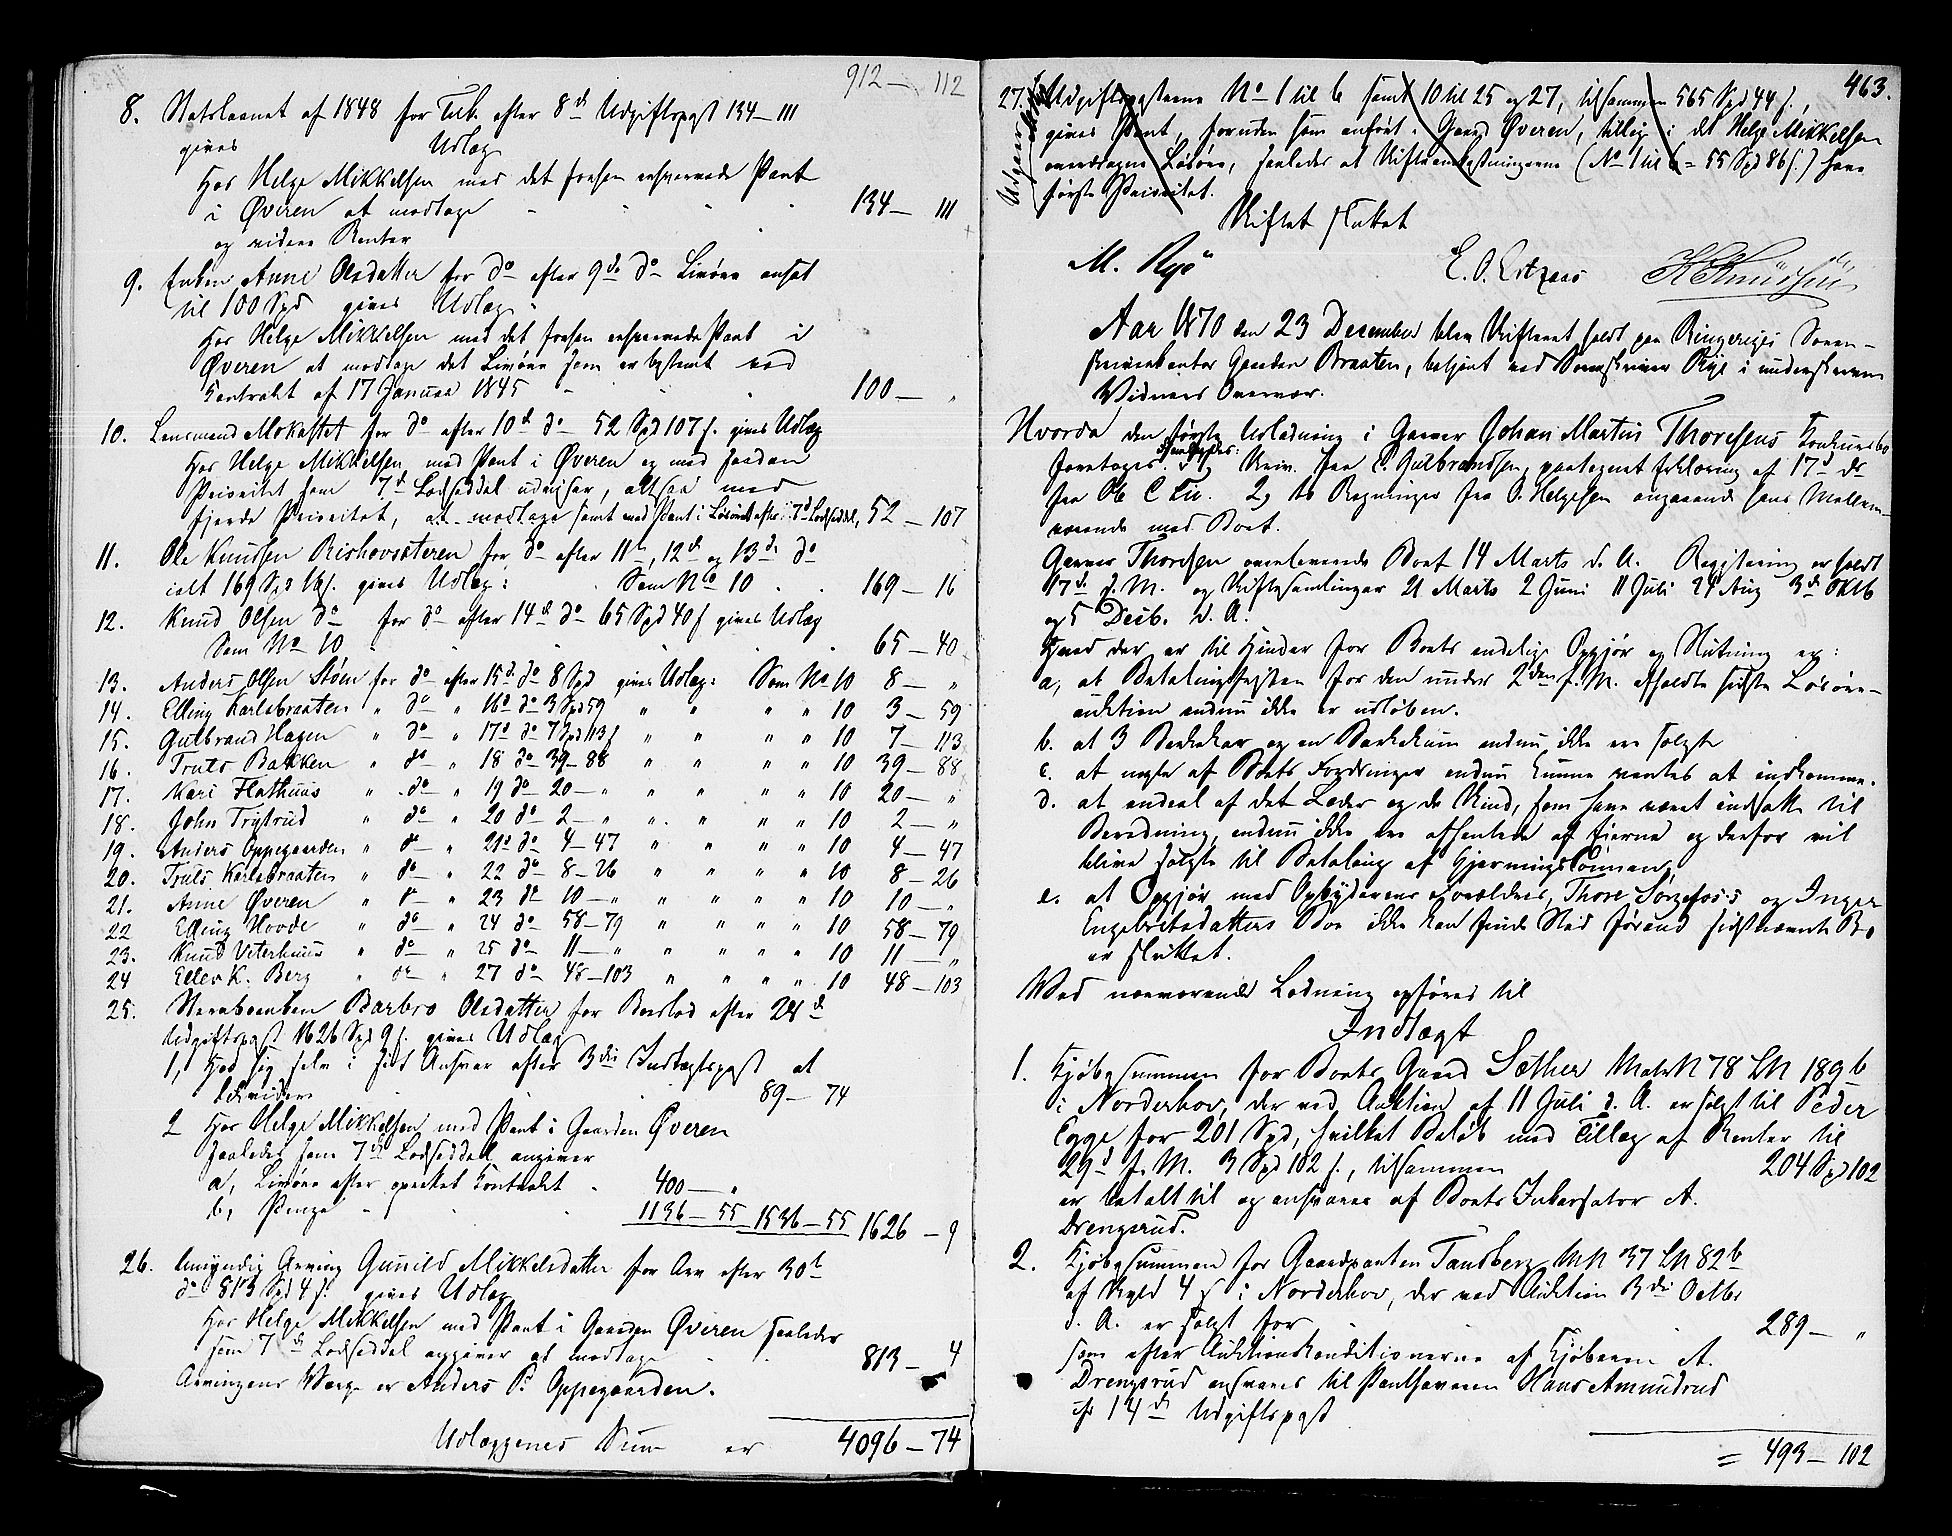 912 — 112
8. Statslaanet af 1848 for Tilb. efter 8d Udgiftspost 134—111
gives Udlæg
Hos Helge Mikkelsen med det foran ommeldte Pant
i Øveren at modtage 134 — 111
og videre Renter
9. Enken Anne Olsdatter for do efter 9de do Livøre ansat
til 100 Spd gives Udlæg
Hos Helge Mikkelsen med det foran Pant i
Øveren at modtage det Livøre som er bestemt ved
Kontrakt af 17 Januar 1845 100 — "
10. Lensmand Mokastet for do efter 10d do 52 Spd 107 s. gives Udlæg
Hos Helge Mikkelsen med Pant i Øveren og med saadan
Prioritet som 7d Lodseddel udviser, altsaa med
fjerde Prioritet, at modtage samt med Pant i Løsøret efter 7d Lodseddel, 52 — 107
11. Ole Knudsen Bishovsæteren for do efter 11te, 12d og 13d do
ialt 169 Spd 16 s. gives Udlæg: Som No 10 169 — 16
12. Knud Olsen do for do efter 14d do 65 Spd 40 s gives Udlæg
Som No 10 65 — 40
13. Anders Olsen Støen for do efter 15d do 8 Spd gives Udlæg: Som No 10 8 — "
14. Elling Karlsbraaten " do " 16d do 3 Spd 59 " " " " 10 3 — 59
15. Gulbrand Hagen " do " 17d do 7 Spd 113 s " " " " 10 7 — 113
16. Truls Bakken " do " 18 do 39—88 " " " " 10 39 — 88
17. Kari Flathuus " do " 19 do 20—" " " " " 10 20 — "
18. John Trytrud " do " 20 do 2—" " " " " 10 2 — "
19. Anders Oppegaarden " do " 21d do 4—47 " " " " 10 4 — 47
20. Truls Karlsbraaten " do " 22 do 8—26 " " " " 10 8 — 26
21. Anne Øveren " do " 23 do 10—" " " " " 10 10 — "
22 Elling Hovde " do " 24 do 58—79 " " " " 10 58 — 79
23. Knud Veterhuus " do " 25 do 11—" " " " " 10 11 — "
24 Ellev K. Berg " do " 27 do 48—103 " " " " 10 48 — 103
25. Stervboenken Barbro Olsdatter for Boeslod efter 28d
Udgiftspost 1626 Spd 9 s. gives Udlæg
1, Hos sig selv i sit Ansvar efter 3die Indtægtspost at
89 — 74
2 Hos Helge Mikkelsen med Pant i Gaarden Øveren
saaledes som 7de Lodseddel angiver
a, Livøre efter oprettet Kontrakt 400 — "
b, Penge 1136 — 55 1536 — 55 1626 — 9
26. Umyndig Arving Gunild Mikkelsdatter for Arv efter 30te
do 813 Spd 4 s. gives Udlæg
Hos Helge Mikkelsen med Pant i Gaarden Øveren saaledes
som 7de Lodseddel angiver at modtage 813 — 4
Arvingens Værge er Anders P. Oppegaarden.
Udlæggenes Sum er 4096 — 74
463.
27. Udgiftsposterne No 1 til 6 samt 10 til 25 og 27, tilsammen 565 Spd 44 s.,
gives Pant, foruden som anført i Gaard Øveren, tillige i det Helge Mikkelsen
overdragne Løsøre, saaledes at Skifteomkostningerne (No 1 til 6 = 55 Spd 86 s.) have
første Prioritet.
Udgaar
Skiftet sluttet
M. Rye E. O. Lityaas K Knudsen
Aar 1870 den 23 December blev Skifteret holdt paa Ringeriges Soren-
skriverkontor Gaarden Braaten, betjent ved Sorenskriver Rye i underskrevne
Vidners Overvær.
Hvorda den første Udlodning i Garver Johan Martin Thoresens Konkursbo
foretages. Fremlagdes: 1, Skriv. fra C. Gulbrandsen, paategnet Erklæring af 17d ds
fra Ob C Lie. 2, to Regninger fra O. Helgesen angaaende hans Mellem-
værende med Boet.
Garver Thoresen overleverede Boet 14 Marts d. A. Registrering er holdt
17d s. M. og Skiftesamlinger 21 Marts 2 Juni 11 Juli 29 Aug 3d Oktb
og 5 Decb. d. A.
Hvad der er til Hinder for Boets endelige Opgjør og Slutning er:
a, at Betalingsfristen for den under 2den s. M. afholdte sidste Løsøre-
auktion endnu ikke er udløben.
b. at 3 Barkekar og en Barkekum endnu ikke er solgte
c. at nogle af Boets Fordringer endnu kunne ventes at indkomme.
d. at endeel af det Læder og de Skind, som have været indsatte til
Beredning, endnu ikke ere afhentede af Eierne og derfor vil
blive solgte til Betaling af Garvningslønnen,
e. at Opgjør med Opbyderens Forældre, Thore Sørgefos's og Inger
Engebretsdatters Bo ikke kan finde Sted førend sidstnævnte Bo
er sluttet.
Ved nærværende Lodning opføres til
Indtægt
1. Kjøbesummen for Boets Gaard Sæther Matr N 78 LN 189 b
i Norderhov, der ved Auktion af 11 Juli d. A. er solgt til Peder
Egge for 201 Spd, hvilket Beløb med Tillæg af Renter til
29d s. M. 3 Spd 102 s., tilsammen 204 Spd 102
er betalt til og ansvares af Boets Inkassator A.
Drengsrud.
2. Kjøbesummen for Gaardparten Tandberg MN 37 LN 82 b
af Skyld 4 s i Norderhov, der ved Auktion 3die Octbr
d. A. er solgt for 289 — "
som efter Auktionskonditionerne af Kjøberen A.
Drengsrud ansvares til Panthaveren Hans Amundrud
cfr 14de Udgiftspost
= 493 — 102